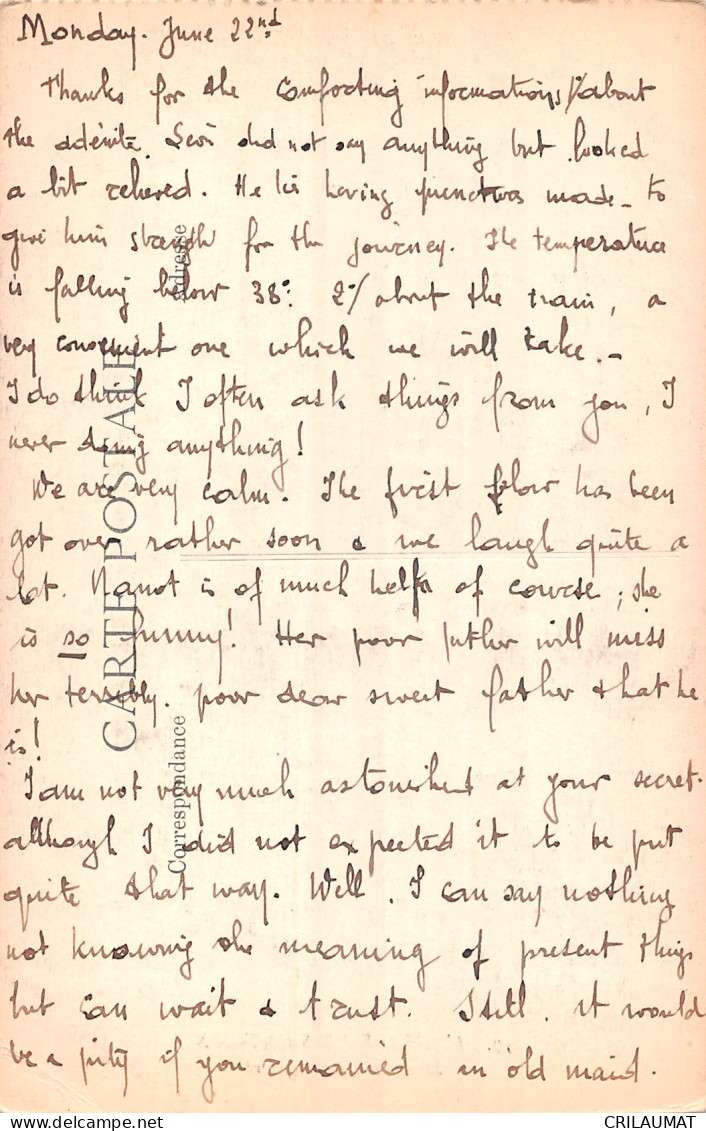 Monday. June 22nd
Thanks for the comforting informations 1/ about
the adénite. Levi did not say anything but looked
a bit relieved. He is having punctures made - to
give him strength for the journey. The temperature
is falling below 38°. 2/ about the train, a
very convenient one which we will take. -
I do think I often ask things from you, I
never doing anything!
We are very calm. The first blow has been
got over rather soon & we laugh quite a
lot. Nanot is of much help of course; she
is so funny! Her poor father will miss
her terribly. poor dear sweet father that he
is!
I am not very much astonished at your secret.
although I did not expected it to be put
quite that way. Well, I can say nothing
not knowing the meaning of present things
but can wait & trust. Still, it would
be a pity if you remained an old maid.
CARTE POSTALE
Correspondance
Adresse
CRILAUMAT